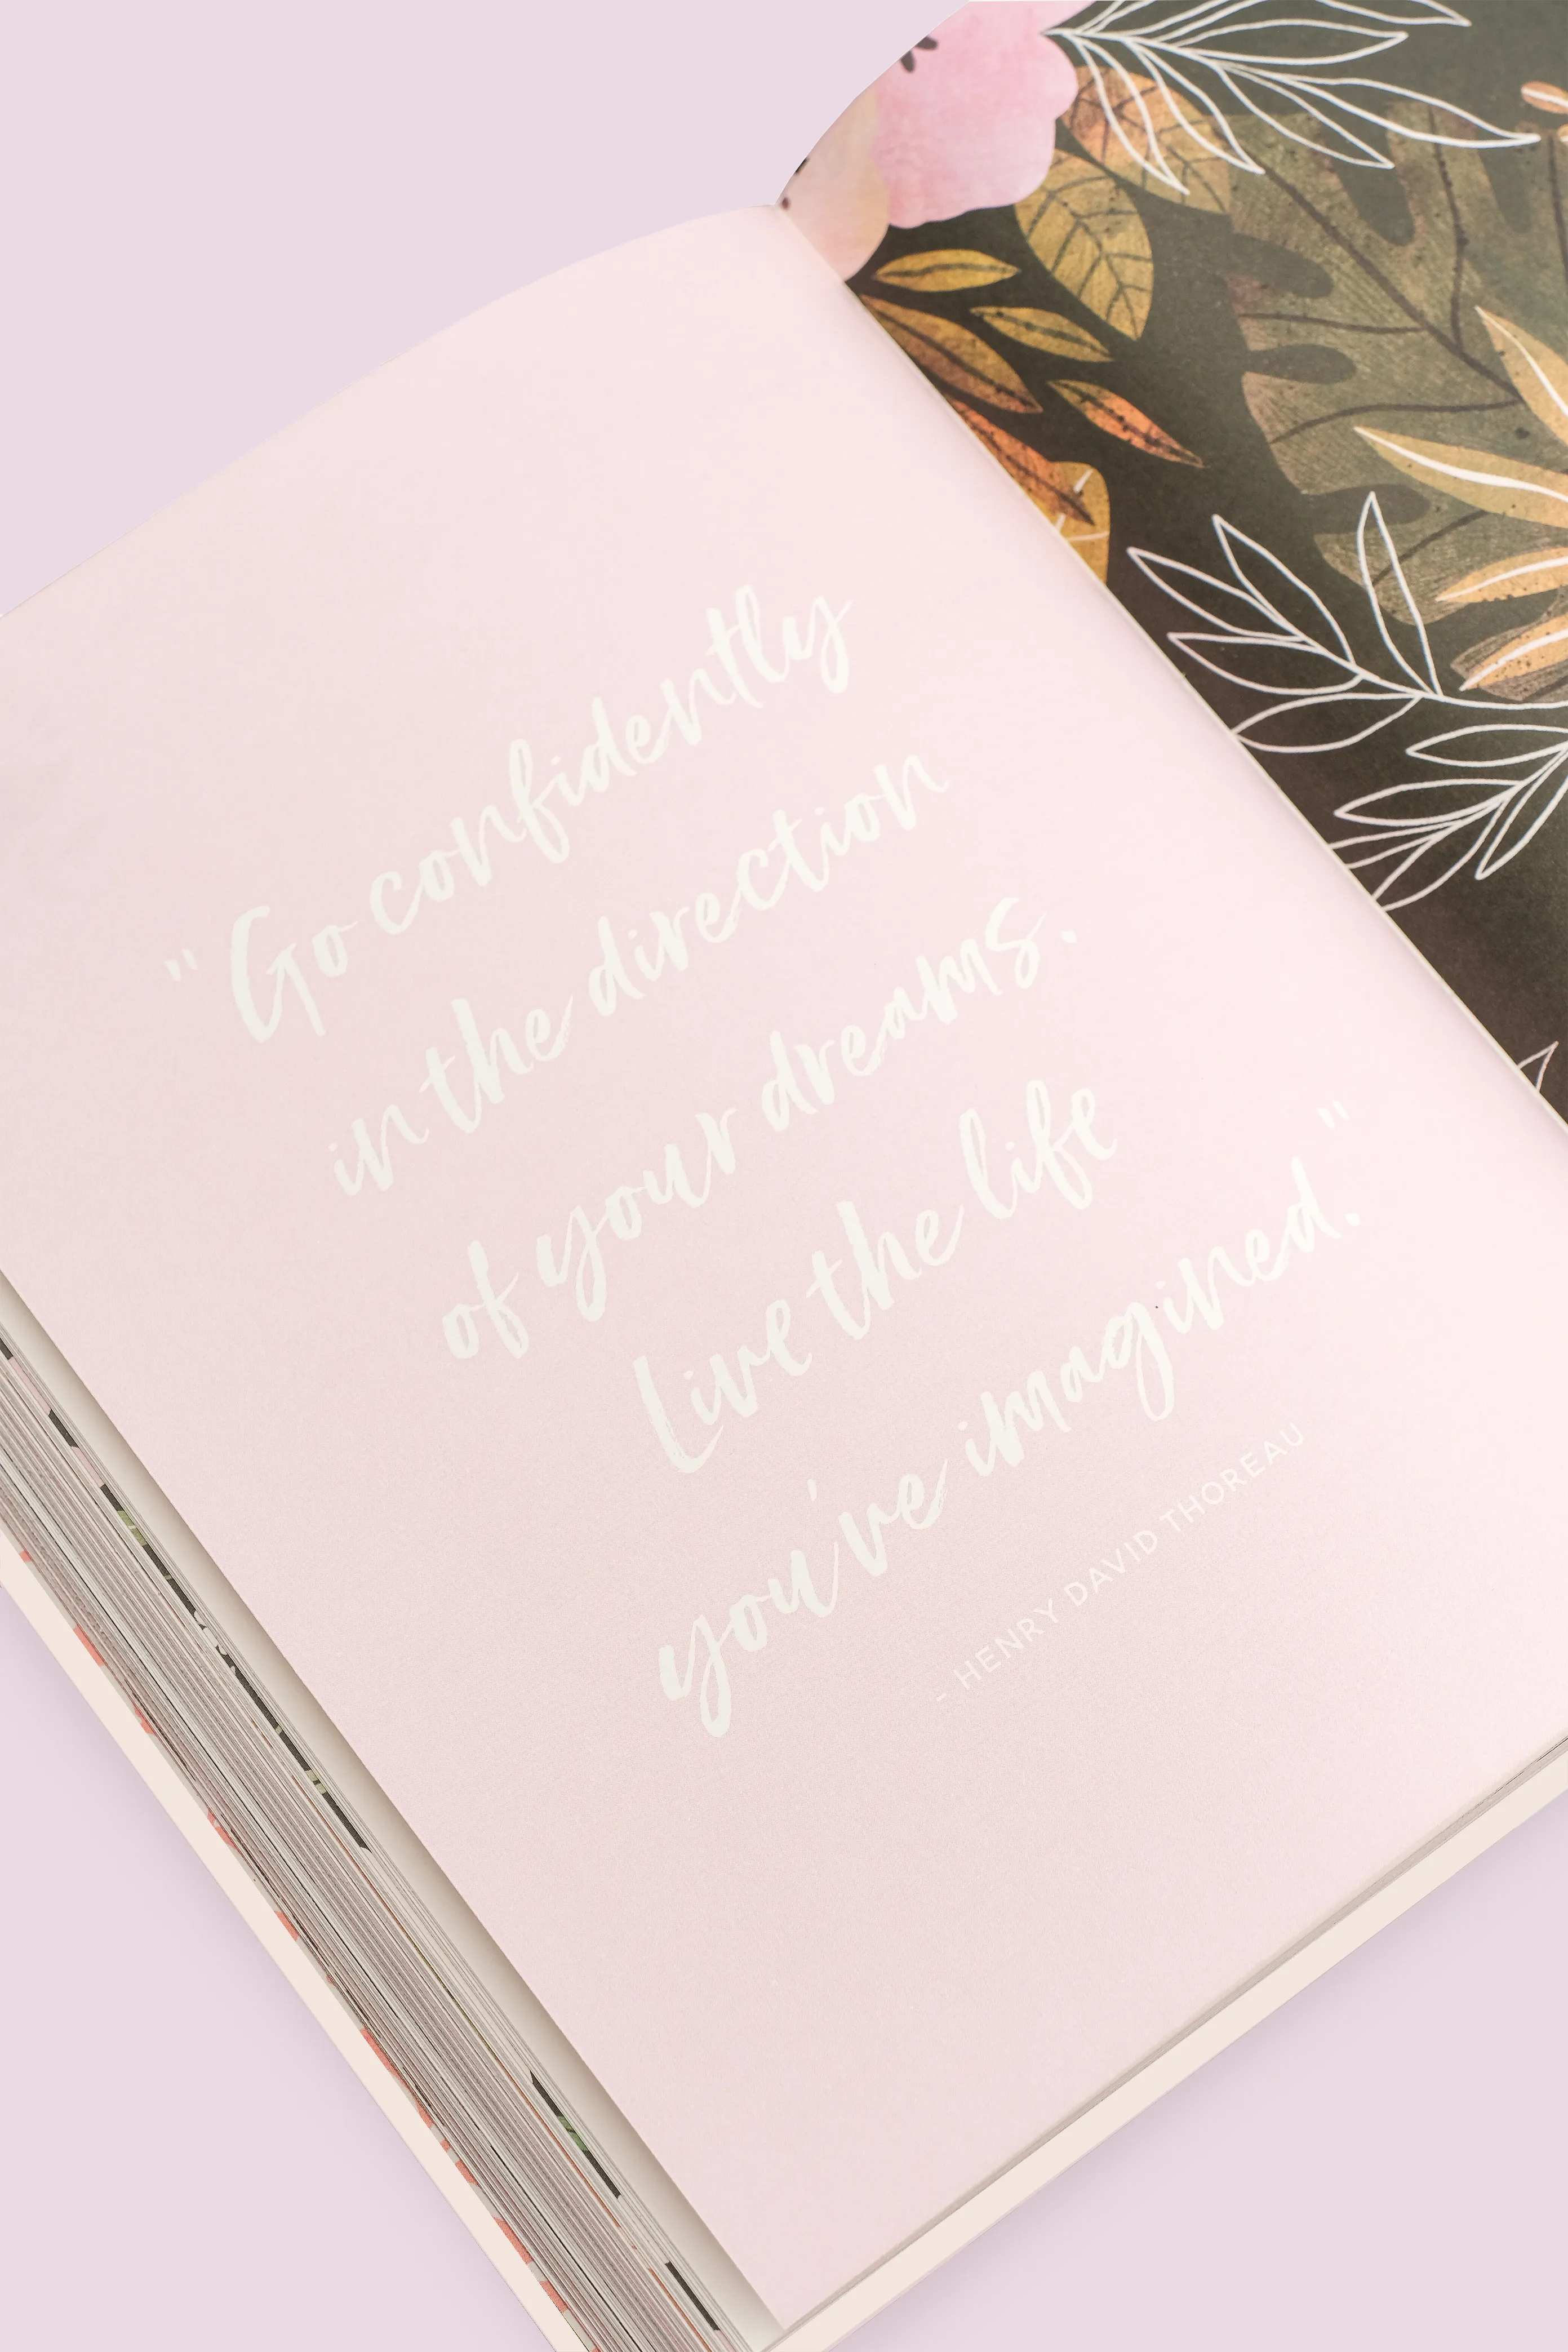 "Go confidently
in the direction
of your dreams.
Live the life
you've imagined."
- HENRY DAVID THOREAU